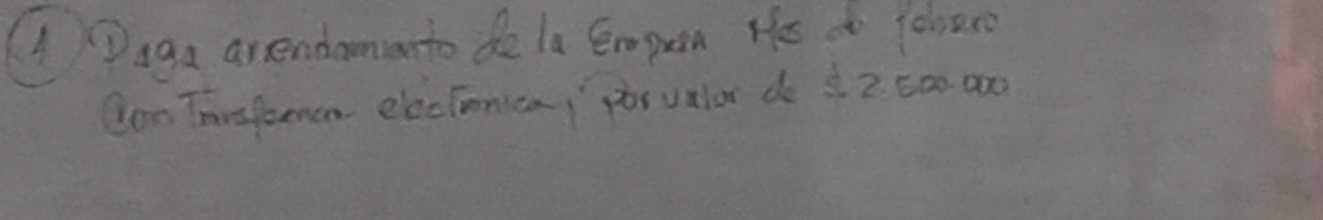 ① Paga arrendamiento de la Empresa Mes de febrero
Con Transferencia electronica, por valor de $ 2.500.000